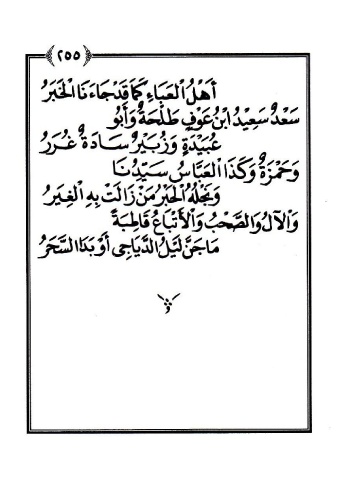 ٢٥٥
أَهْلُ الْعَبَاءِ كَمَا قَدْ جَاءَنَا الْخَبَرُ
سَعْدٌ سَعِيدُ ابْنُ عَوْفٍ طَلْحَةٌ وَأَبُو
عُبَيْدَةٍ وَزُبَيْرٌ سَادَةٌ غُرَرُ
وَحَمْزَةٌ وَكَذَا الْعَبَّاسُ سَيِّدُنَا
وَنَجْلُهُ الْحَبْرُ مَنْ زَالَتْ بِهِ الْغِيَرُ
وَالْآلُ وَالصَّحْبُ وَالْأَتْبَاعُ قَاطِبَةً
مَا جَنَّ لَيْلُ الدَّيَاجِي أَوْ بَدَا السَّحَرُ